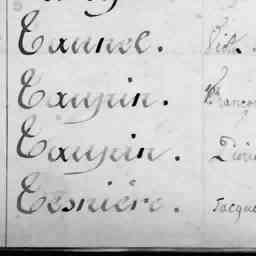 Taunel. Vict.
Taupin. Franço
Taupin. Pierr
Tesnière. Jacque